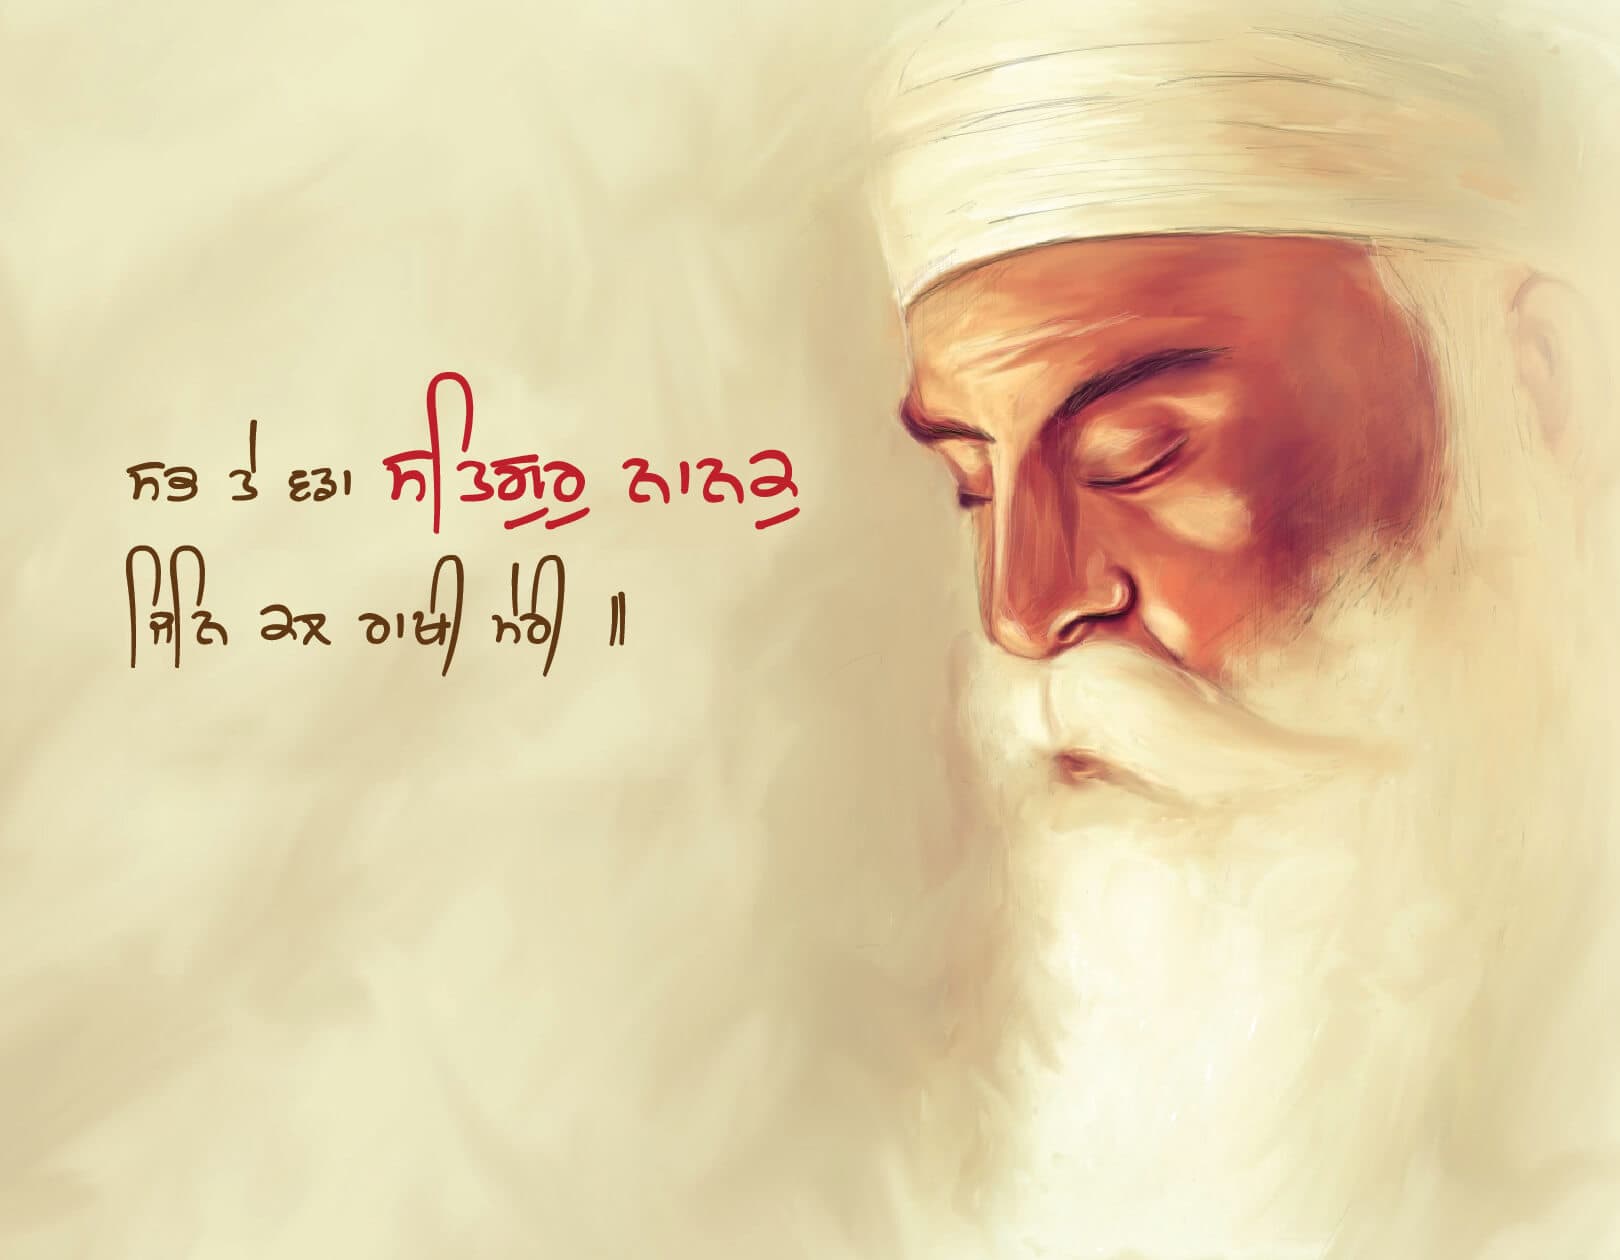 ਸਭ ਤੇ ਵਡਾ ਸਤਿਗੁਰੁ ਨਾਨਕੁ
ਜਿਨਿ ਕਲ ਰਾਖੀ ਮੇਰੀ ॥